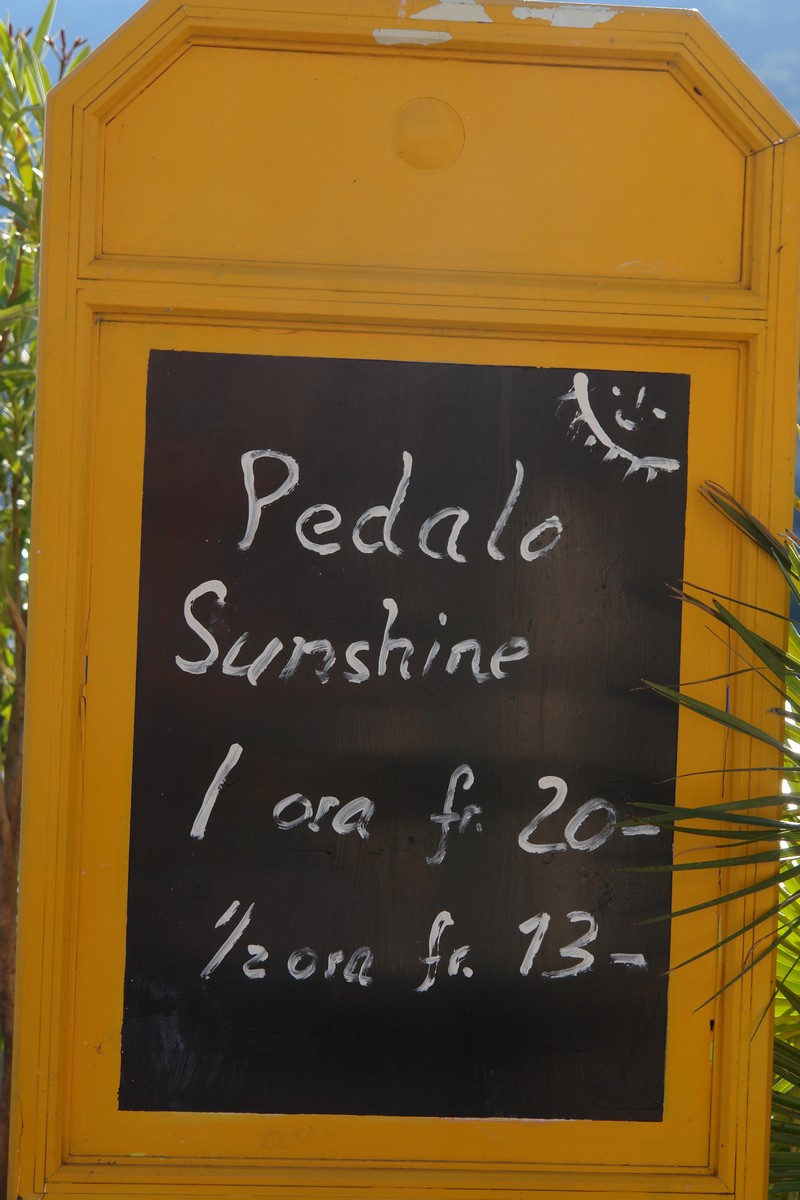 Pedalo
Sunshine
1 ora fr. 20-
1/2 ora fr. 13-